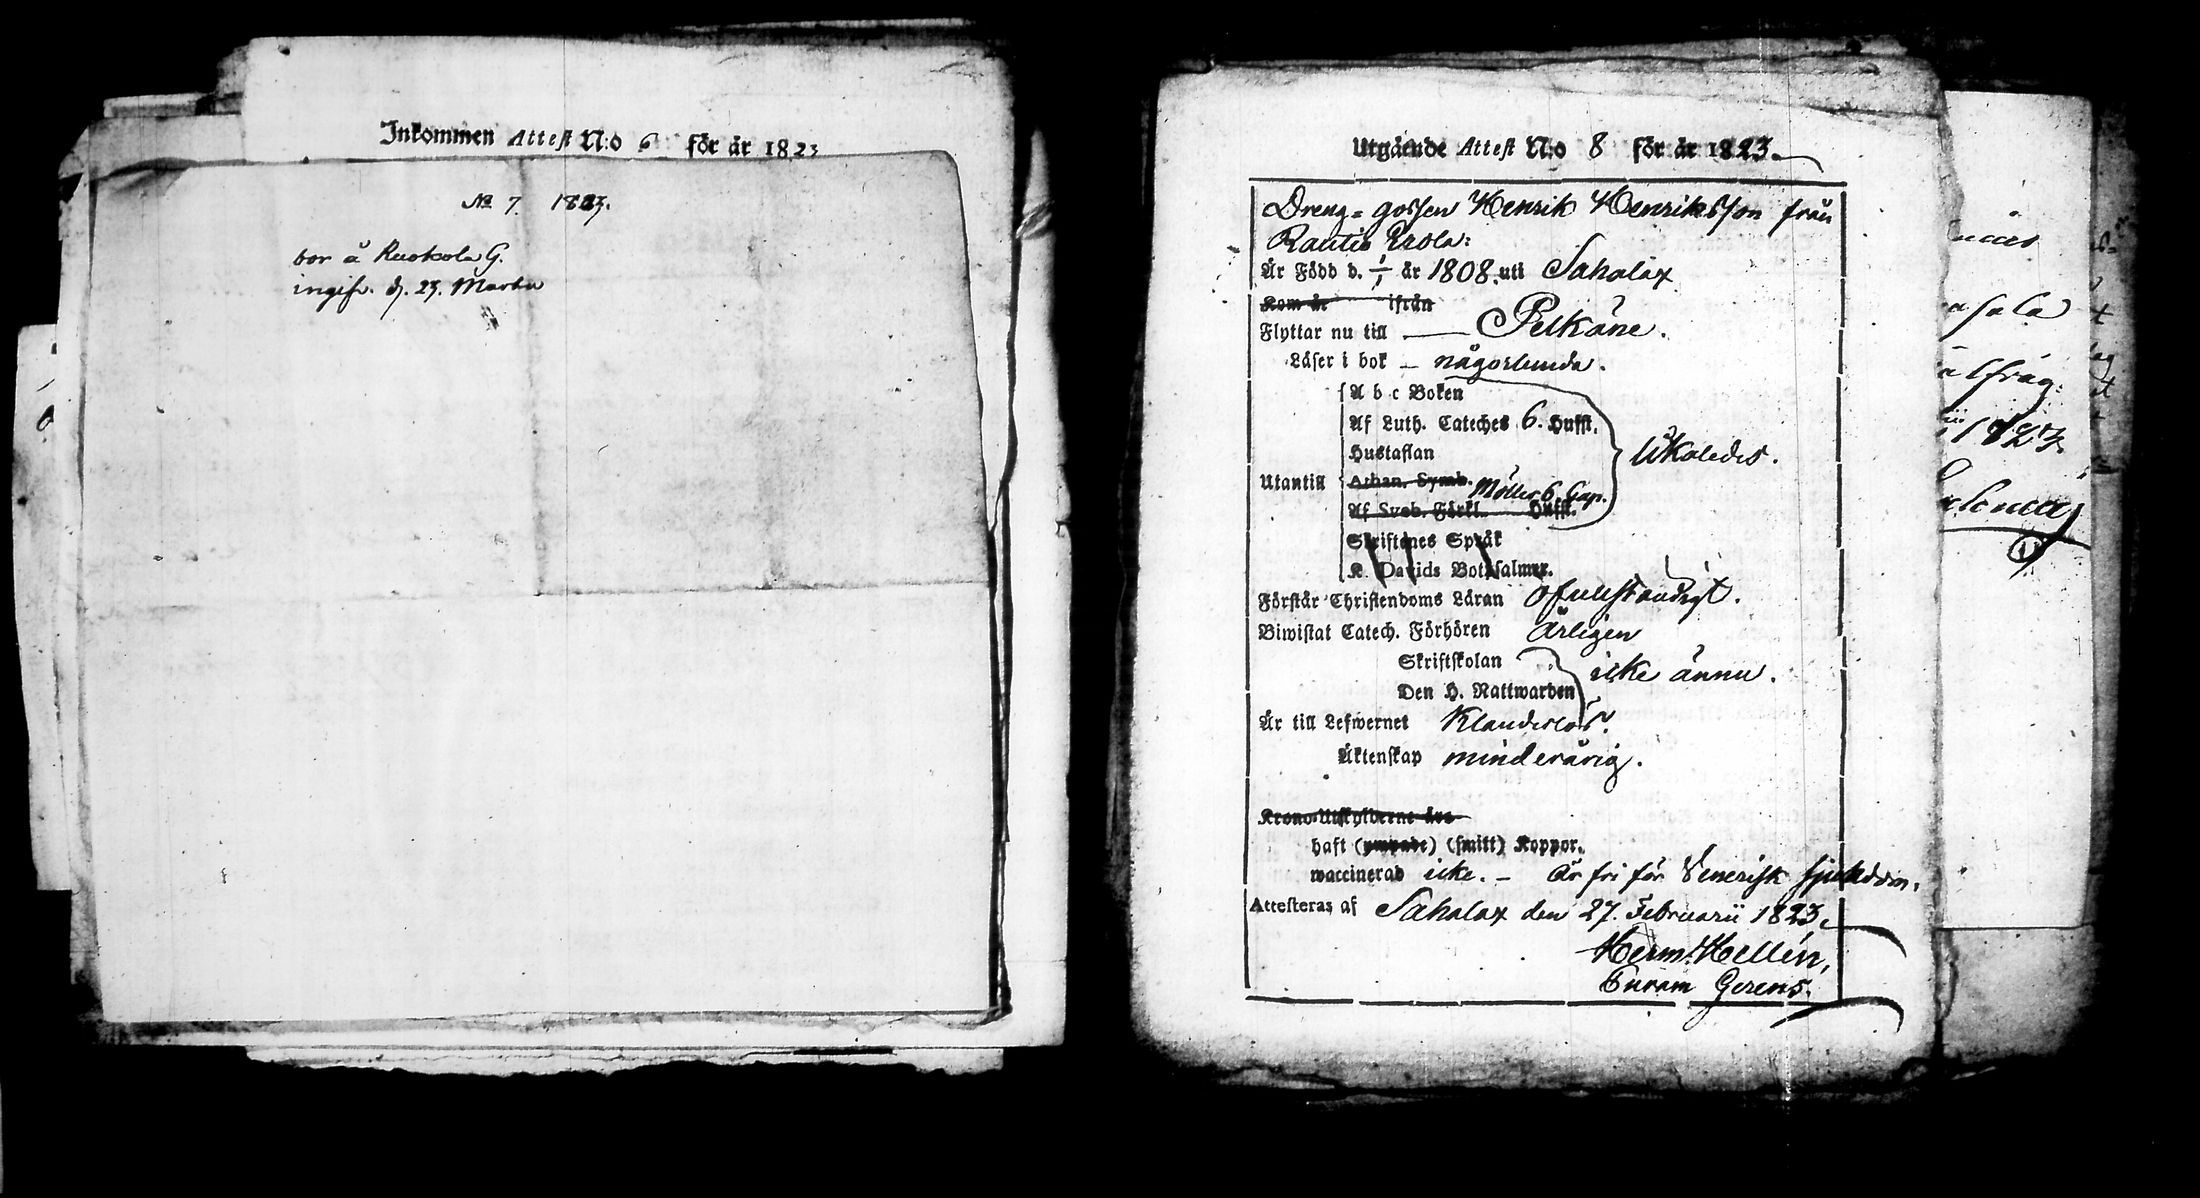 Inkommen Attest N:o 6 för år 1823
No 7. 1823.
bor å Ruokola G.
ingifv. d. 23. Martii
Utgående Attest N:o 8 för år 1823.
Dreng-gossen Henrik Henriksson från
Rautio Erola:
Är Född d. 1/1 år 1808. uti Sahalax
Kom år ifrån
Flyttar nu till — Pelkäne.
Läser i bok — någorlunda.
A b c Boken
Af Luth. Cateches 6. Hufst.
Hustaflan
Utantill
Athan. Symb.
Af Sveb. Förkl. Hufst.
6 Cap.
Skriftenes Språk
K. Davids Botpsalmer.
Förstår Christendoms Läran ofullständigt.
Biwistat Catech. Förhören Årligen
Skriftskolan
Den H. Nattwarden
icke ännu.
Är till Lefwernet Klanderlös.
Äktenskap minderårig.
Krono-Utskylderne åre
haft (ympade) (smitt) Koppor.
waccinerad icke. — Är fri för Venerisk sjukdom.
Attesteras af Sahalax den 27. Februarii 1823.
Herm: Hellén,
Curam Gerens.
1823